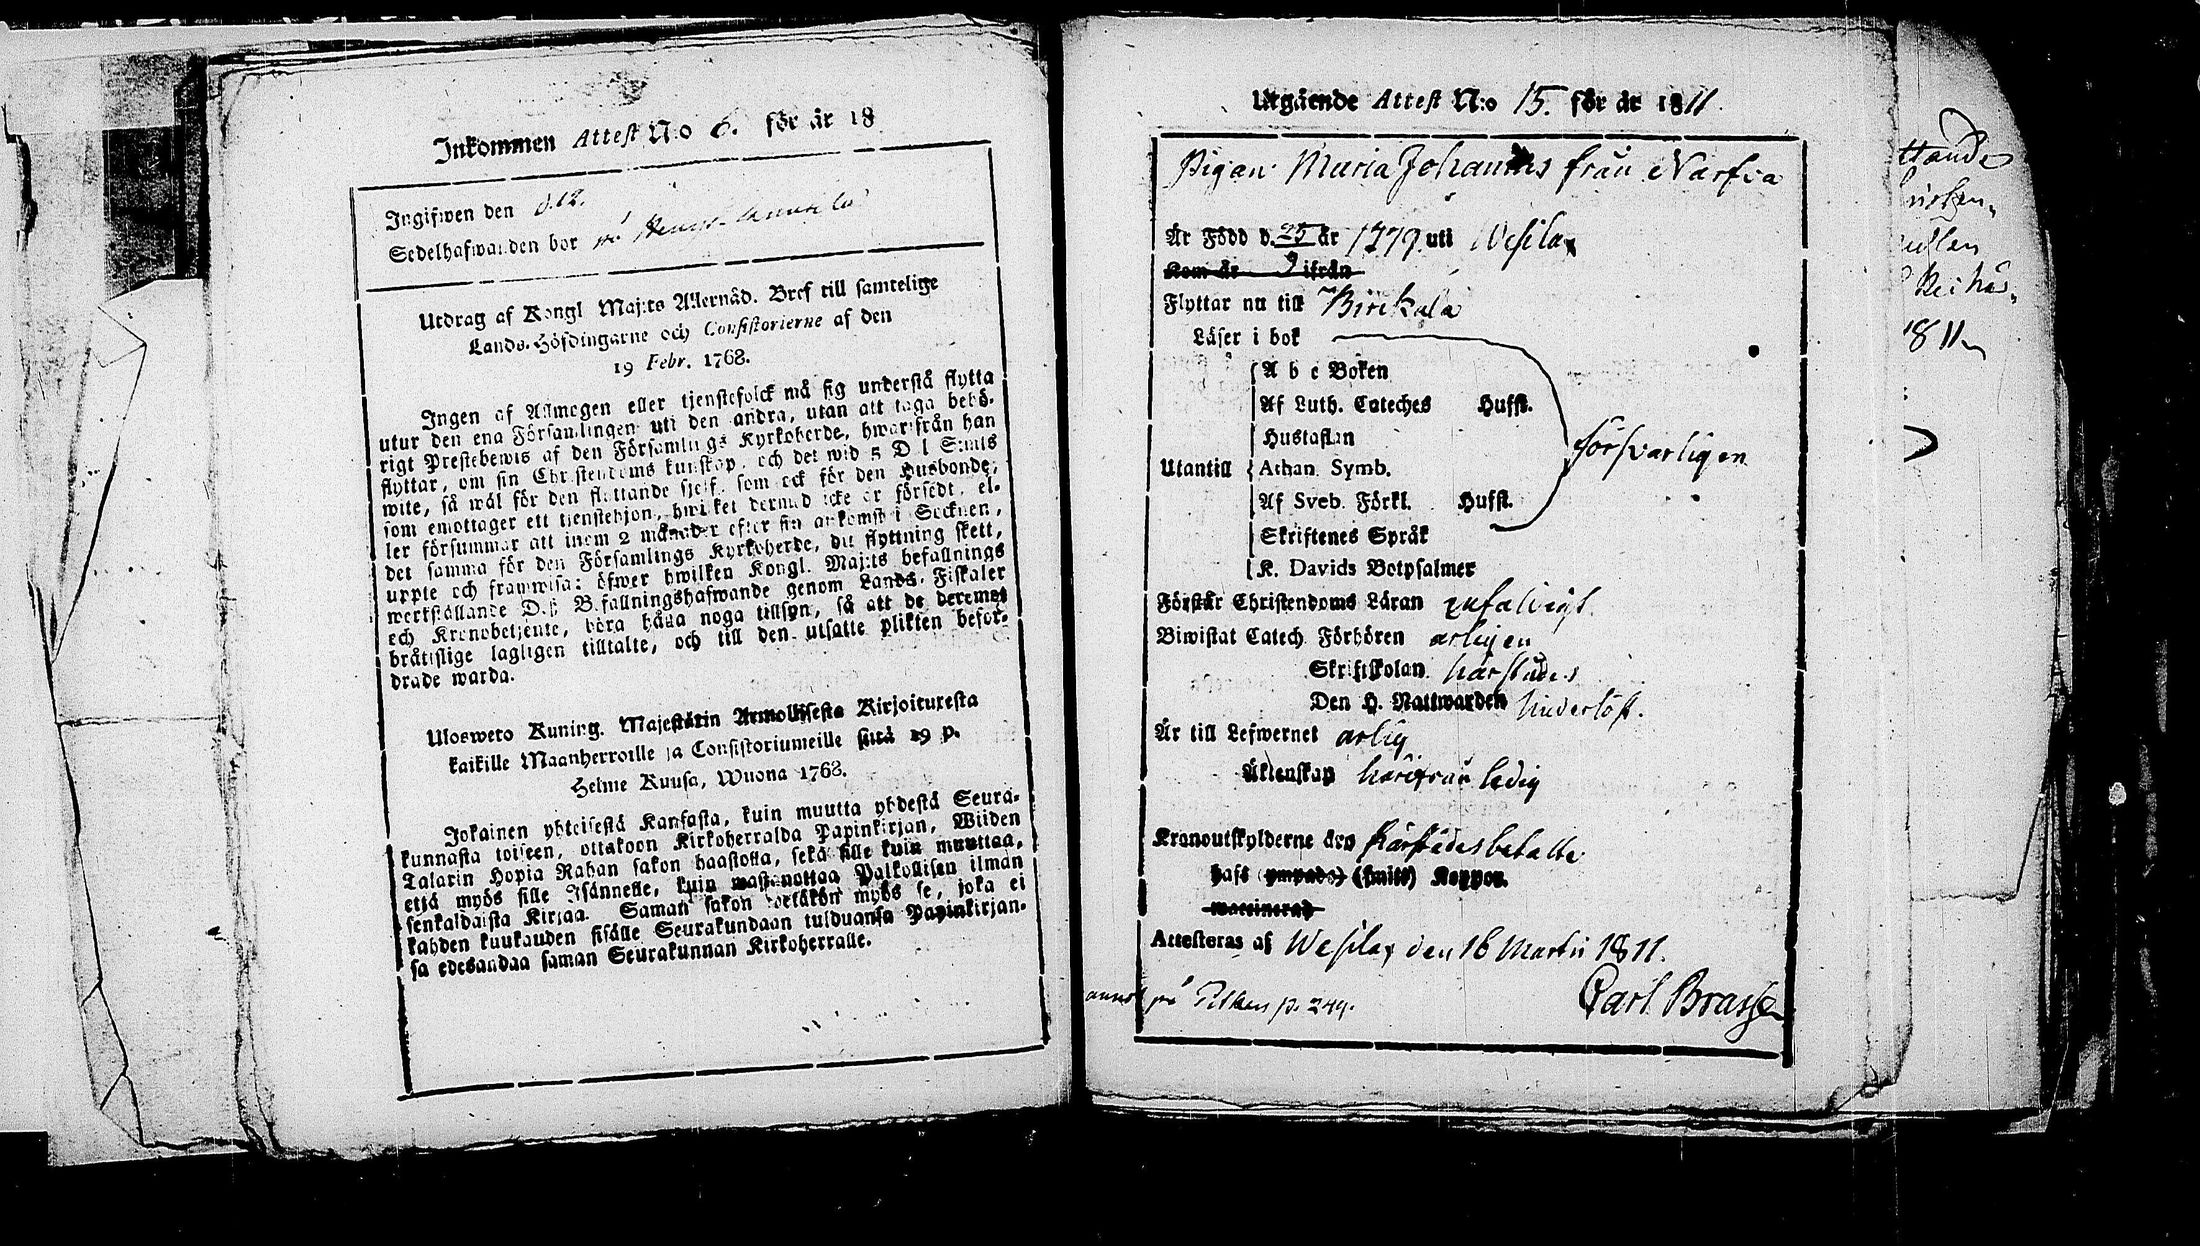 Inkommen Attest N:o 6. för år 18
Ingifwen den d. 12.
Sedelhafwanden bor på
Utdrag af Kongl Maj:ts Allernåd. Bref till samtelige
Lands-Höfdingarne och Consistorierne af den
19 Febr. 1768.
Ingen af Allmogen eller tjenstefolck må sig understå flytta
utur den ena Församlingen uti den andra, utan att taga behö-
rigt Prestebewis af den Församlings Kyrkoherde, hwarifrån han
flyttar, om sin Christendoms kunskap, och det wid 5 D l S:mts
wite, så wäl för den flyttande sjelf, som ock för den Husbonde,
som emottager ett tjenstehjon, hwilket dermed icke är försedt, el-
ler försummar att inom 2 månader efter sin ankomst i Socknen,
det samma för den Församlings Kyrkoherde, dit flyttning skett,
uppte och framwisa: öfwer hwilken Kongl. Maj:ts befallnings
werkställande D.ß Befallningshafwande genom Lands-Fiskaler
och Kronobetjente, böra hålla noga tillsyn, så att de deremot
bråttslige lagligen tilltalte, och till den utsatte plikten befor-
drade warda.
Ulosweto Kuning. Majestätin Armollisesta Kirjoituxesta
kaikille Maanherroille ja Consistoriumeille siitä 19 p.
Helme Kuusa, Wuona 1768.
Jokainen yhteisestä Kansasta, kuin muutta yhdestä Seura-
kunnasta toiseen, ottakoon Kirkoherralda Papinkirjan, Wiiden
Talarin Hopia Rahan sakon haastolla, sekä sille kuin muuttaa,
että myös sille Isännelle, kuin wastanottaa Palkollisen ilman
senkaldaista Kirjaa. Saman sakon wetäkön myös se, joka ei
kahden kuukauden sisälle Seurakundaan tulduansa Papinkirjan-
sa edesandaa saman Seurakunnan Kirkoherralle.
Utgående Attest N:o 15. för år 1811
Pigan Maria Johan från Narfva
Är Född d. 25 år 1779 uti Wesilax
Kom år 9 ifrån
Flyttar nu till Birckala
Läser i bok
A b c Boken
Af Luth. Cateches Hufst.
Hustaflan
Utantill Athan. Symb. försvarligen
Af Sveb. Förkl. Hufst.
Skriftenes Språk
K. Davids Botpsalmer
Förstår Christendoms Läran enfaldigt
Biwistat Catech. Förhören årligen
Skriftskolan härstädes
Den H. Nattwarden
Är till Lefwernet ärlig
Äktenskap härifrån ledig
Kronoutskylderne äro härstädes betalte
haft (ympade) (smitt) Koppor.
waccinerad
Attesteras af Wesilax den 16 Martii 1811.
Carl Brasse
på p. 249.
1811